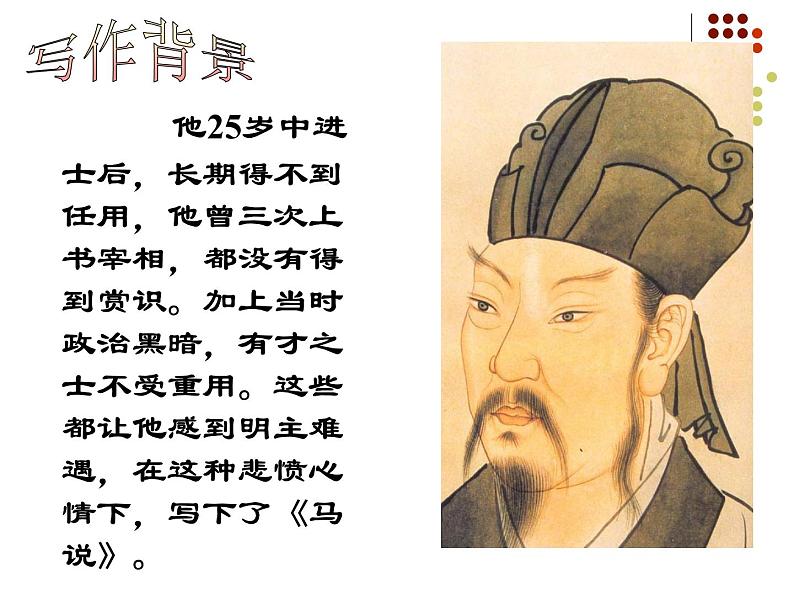 写作背景
他25岁中进
士后，长期得不到
任用，他曾三次上
书宰相，都没有得
到赏识。加上当时
政治黑暗，有才之
士不受重用。这些
都让他感到明主难
遇，在这种悲愤心
情下，写下了《马
说》。